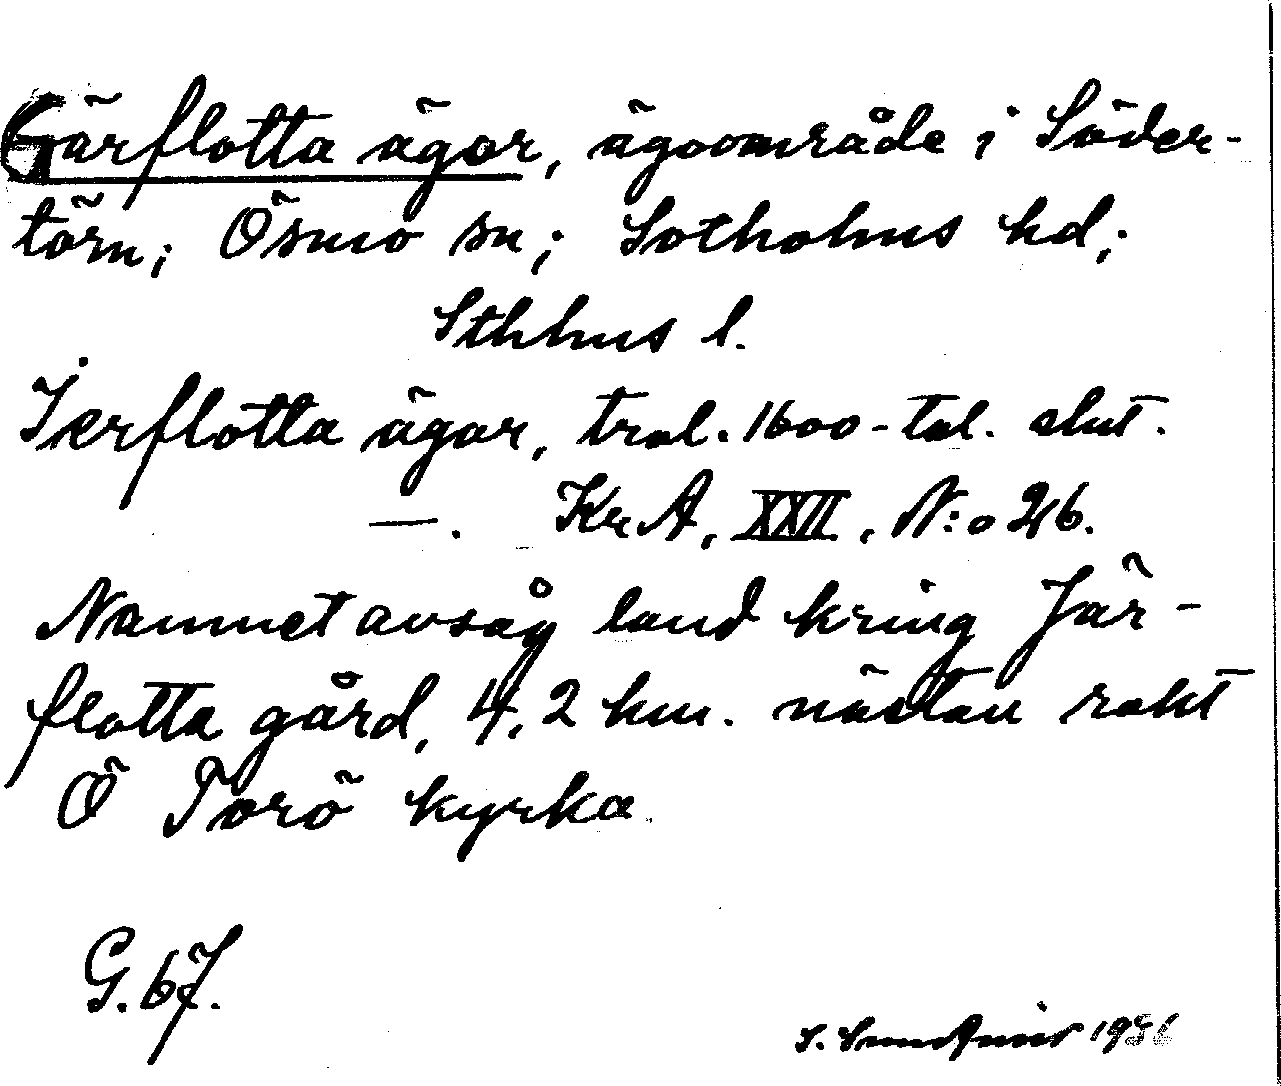 Gärflotta ägor, ägoområde i Söder-
törn; Ösmo sn; Sotholms hd;
Sthlms l.
Jerflotta ägor, trol. 1600-tal. slut.
—. KrA, XXII, N:o 26.
Namnet avsåg land kring Jär-
flotta gård, 4,2 km. nästan rakt
Ö Torö kyrka.
G. 67.
S. 1936